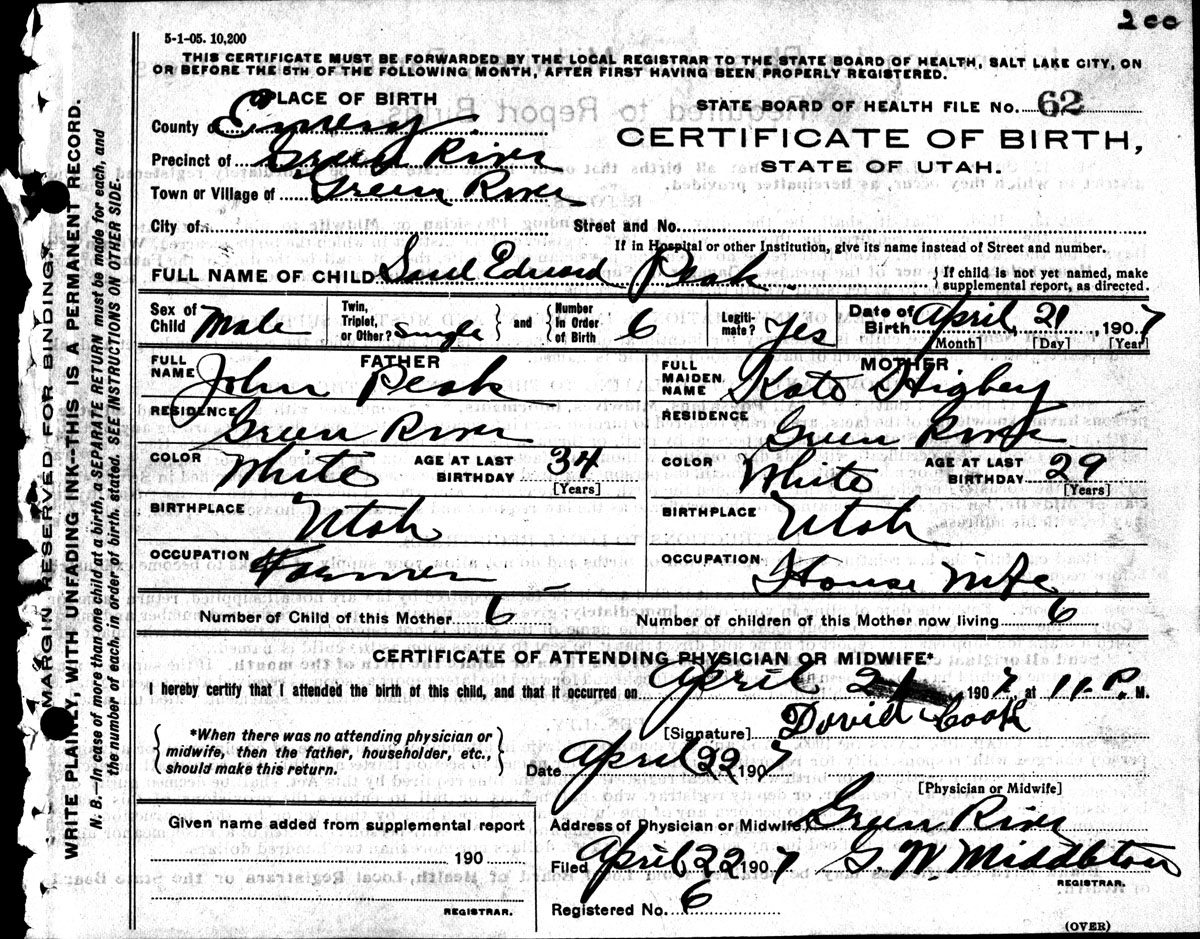 200
5-1-05. 10,200
THIS CERTIFICATE MUST BE FORWARDED BY THE LOCAL REGISTRAR TO THE STATE BOARD OF HEALTH, SALT LAKE CITY, ON
OR BEFORE THE 5TH OF THE FOLLOWING MONTH, AFTER FIRST HAVING BEEN PROPERLY REGISTERED.
PLACE OF BIRTH
STATE BOARD OF HEALTH FILE NO. 62
County of Emery
CERTIFICATE OF BIRTH,
STATE OF UTAH.
Precinct of Green River
Town or Village of Green River
City of
Street and No.
If in Hospital or other Institution, give its name instead of Street and number.
FULL NAME OF CHILD Edward Peak
} If child is not yet named, make
supplemental report, as directed.
Sex of Child Male
Twin, Triplet, or Other? Single } and { Number in Order of Birth 6
Legiti- mate? Yes
Date of Birth April 21, 1907
[Month] [Day] [Year]
FATHER
FULL NAME John Peak
RESIDENCE Green River
COLOR White AGE AT LAST BIRTHDAY 34
[Years]
BIRTHPLACE Utah
OCCUPATION Farmer
MOTHER
FULL MAIDEN NAME Kate Higby
RESIDENCE Green River
COLOR White AGE AT LAST BIRTHDAY 29
[Years]
BIRTHPLACE Utah
OCCUPATION House Wife
Number of Child of this Mother 6
Number of children of this Mother now living 6
CERTIFICATE OF ATTENDING PHYSICIAN OR MIDWIFE*
I hereby certify that I attended the birth of this child, and that it occurred on April 21, 1907, at 11 P. M.
{ *When there was no attending physician or
midwife, then the father, householder, etc.,
should make this return. }
[Signature] David Cook
Date April 22 1907
[Physician or Midwife]
Given name added from supplemental report
190
REGISTRAR.
Address of Physician or Midwife Green River
Filed April 22 1907 G. W. Middleton
REGISTRAR.
Registered No. 6
(OVER)
MARGIN RESERVED FOR BINDING.
WRITE PLAINLY, WITH UNFADING INK—THIS IS A PERMANENT RECORD.
N. B.—In case of more than one child at a birth, a SEPARATE RETURN must be made for each, and
the number of each, in order of birth, stated. SEE INSTRUCTIONS ON OTHER SIDE.